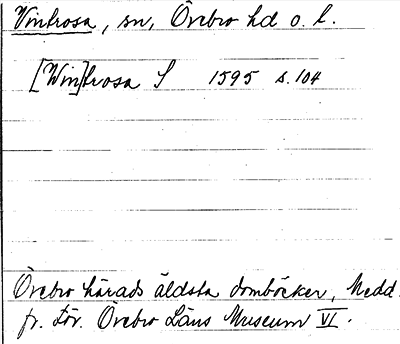 Vintrosa, sn, Örebro hd o. l.
[Win]trosa S 1595 s. 104
Örebro härads äldsta domböcker, Medd.
fr. För. Örebro Läns Museum VI.